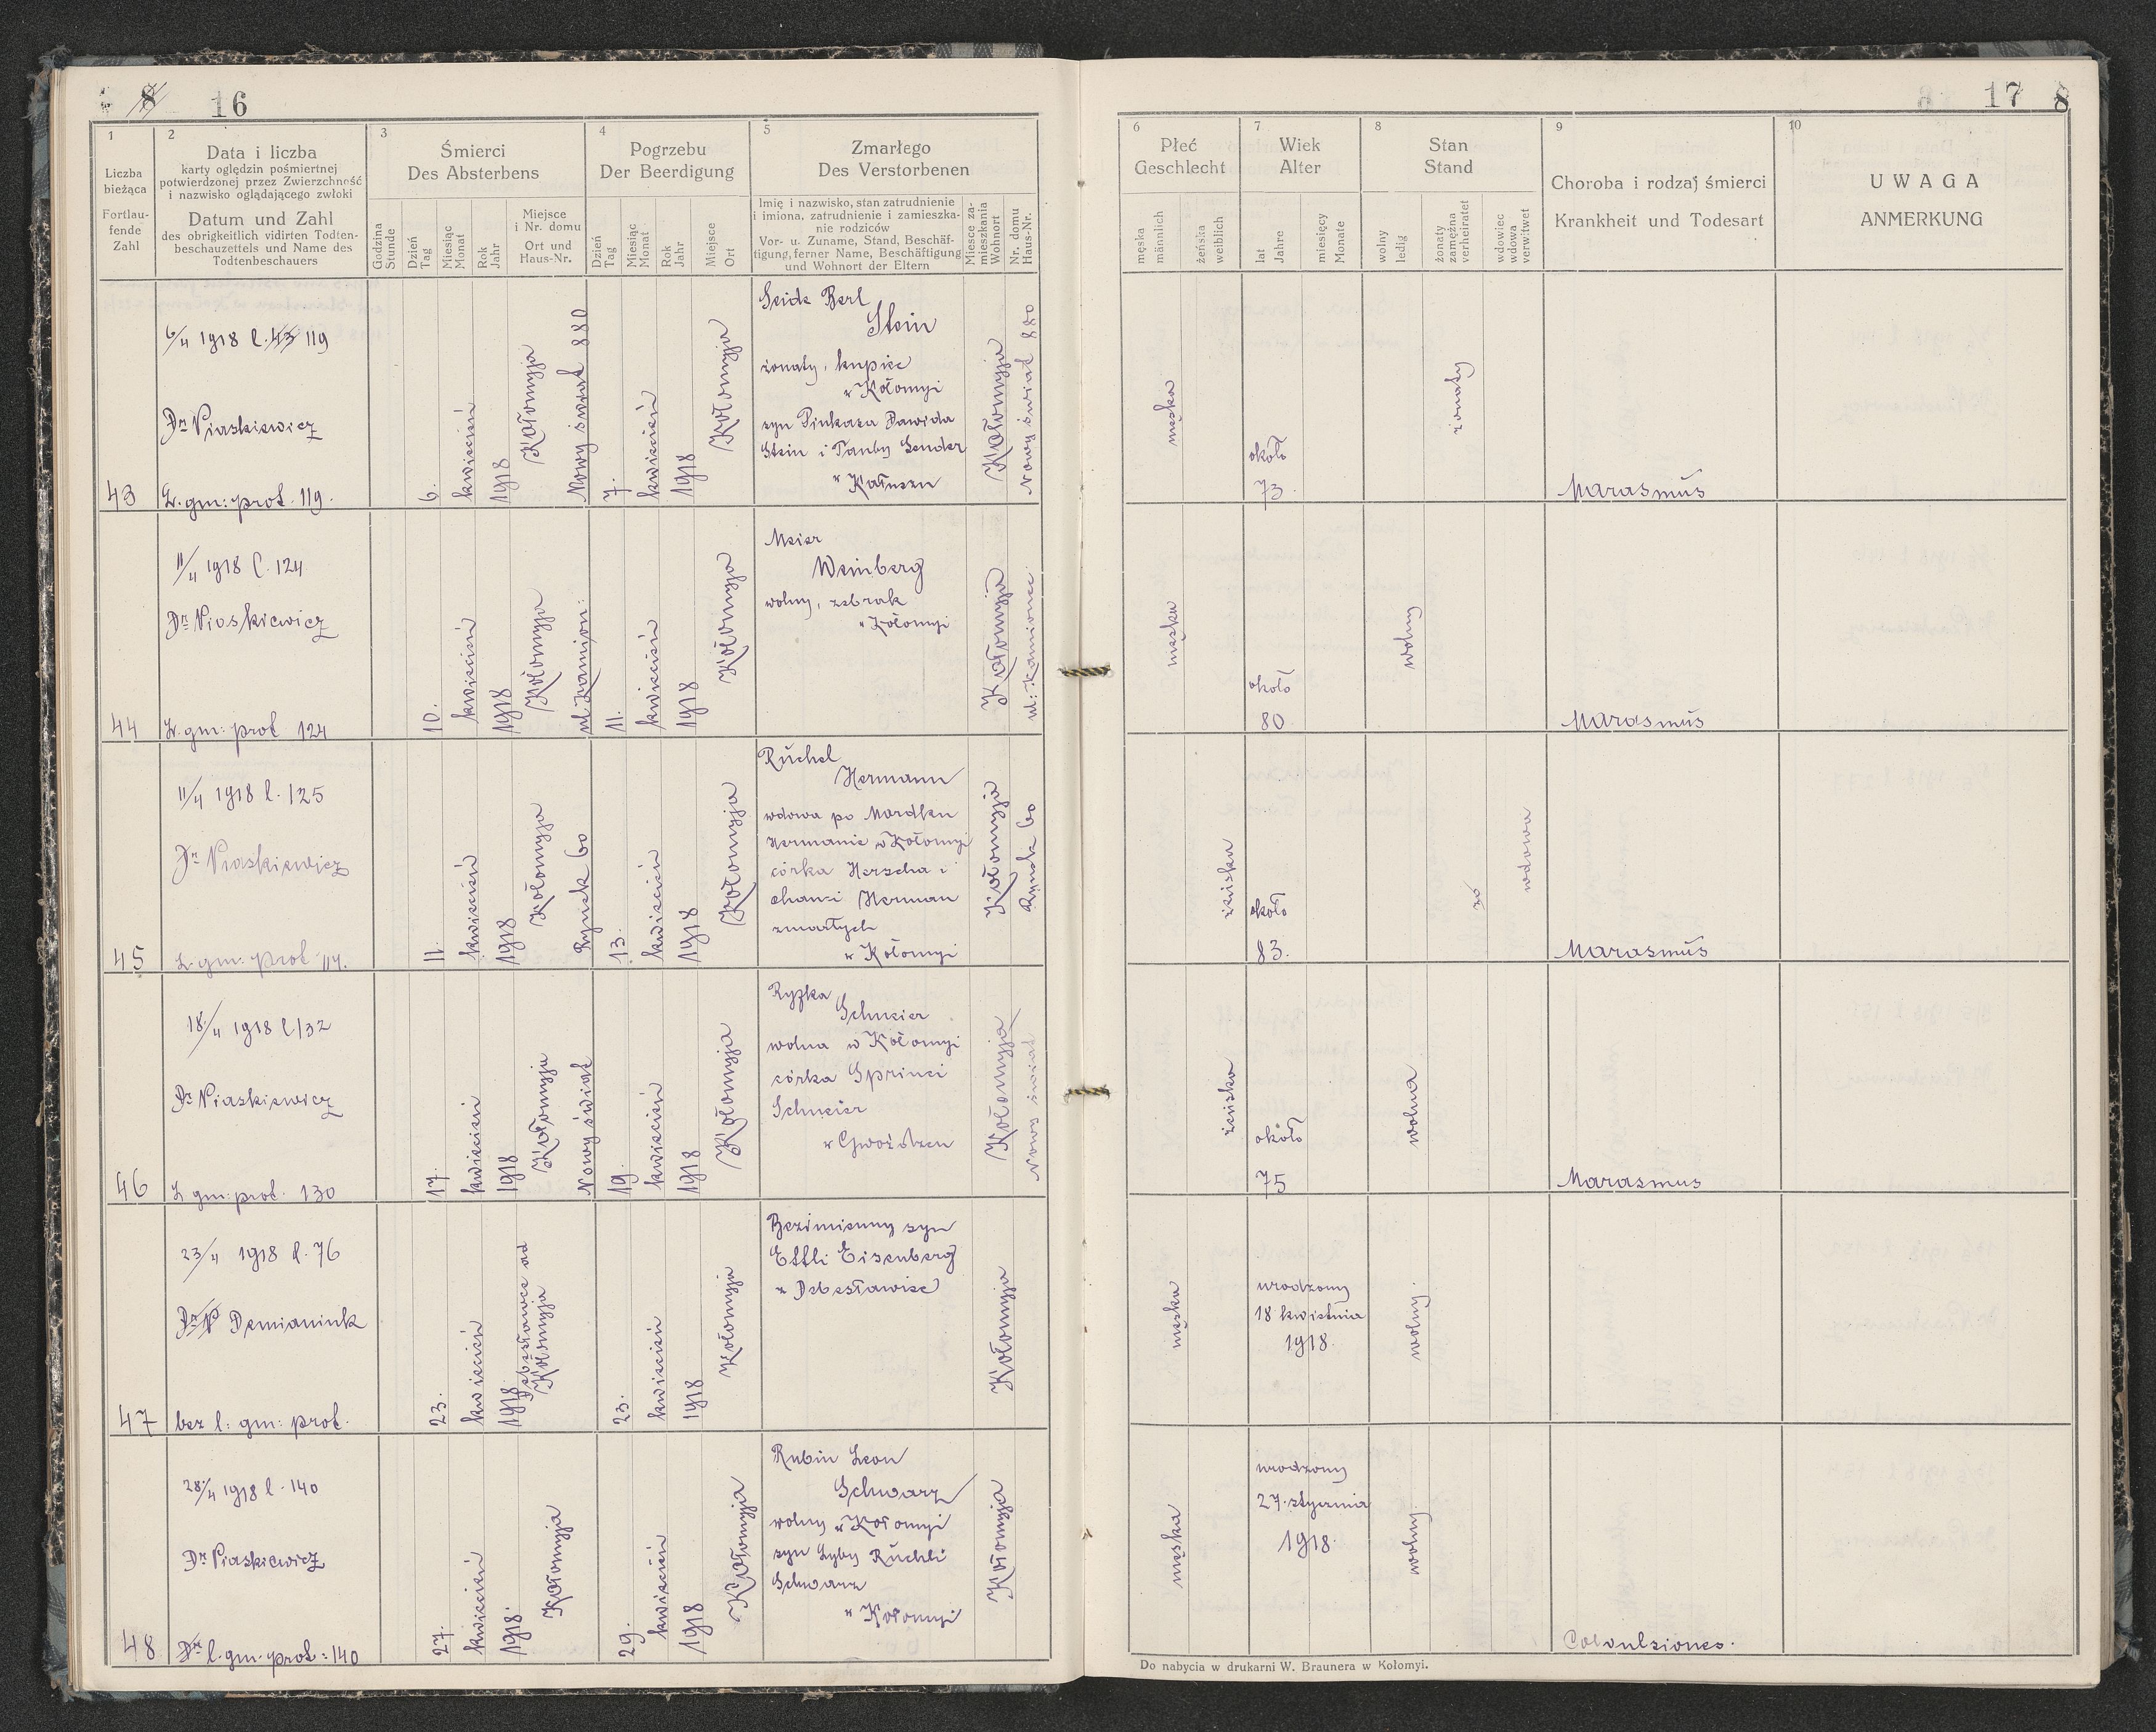 8 16
17 8
1
Liczba
bieżąca
Fortlau-
fende
Zahl
2
Data i liczba
karty oględzin pośmiertnej
potwierdzonej przez Zwierzchność
i nazwisko oglądającego zwłoki
Datum und Zahl
des obrigkeitlich vidirten Todten-
beschauzettels und Name des
Todtenbeschauers
3
Śmierci
Des Absterbens
Godzina
Stunde
Dzień
Tag
Miesiąc
Monat
Rok
Jahr
Miejsce
i Nr. domu
Ort und
Haus-Nr.
4
Pogrzebu
Der Beerdigung
Dzień
Tag
Miesiąc
Monat
Rok
Jahr
Miejsce
Ort
5
Zmarłego
Des Verstorbenen
Imię i nazwisko, stan zatrudnienie
i imiona, zatrudnienie i zamieszka-
nie rodziców
Vor- u. Zuname, Stand, Beschäf-
tigung, ferner Name, Beschäftigung
und Wohnort der Eltern
Miesce za-
mieszkania
Wohnort
Nr. domu
Haus-Nr.
6
Płeć
Geschlecht
męska
männlich
żeńska
weiblich
7
Wiek
Alter
lat
Jahre
miesięcy
Monate
8
Stan
Stand
wolny
ledig
żonaty
zamężna
verheiratet
wdowiec
wdowa
verw:twet
9
Choroba i rodzaj śmierci
Krankheit und Todesart
10
UWAGA
ANMERKUNG
43
6/4 1918 l. 43 119
Dr Piaskiewicz
L. gm: prot. 119.
6.
kwiecień
1918
Kołomyja
Nowy świat 880
7.
kwiecień
1918
Kołomyja
Seide Berl
Stein
żonaty, kupiec
w Kołomyi
syn Pinkasa Dawida
Stein i Tauby Sender
w Kałuszu
Kołomyja
Nowy świat 880
męska
około
73.
żonaty
Marasmus
44
11/4 1918 l. 124
Dr Piaskiewicz
L. gm: prot 124
10.
kwiecień
1918
Kołomyja
ul. Kamion:
11.
kwiecień
1918
Kołomyja
Meier
Weinberg
wolny, żebrak
w Kołomyi
Kołomyja
ul: Kamionec
męska
około
80
wolny
Marasmus
45
11/4 1918 l. 125
Dr Piaskiewicz
L. gm: prot 117.
11.
kwiecień
1918
Kołomyja
Rynek 60
13.
kwiecień
1918
Kołomyja
Ruchel
Hermann
wdowa po Mordku
Hermanie w Kołomyi
córka Herscha i
Chanci Herman
zmarłych
w Kołomyi
Kołomyja
Rynek 60
żeńska
około
83.
wdowa
Marasmus
46
18/4 1918 l 132
Dr Piaskiewicz
L gm: prot. 130
17.
kwiecień
1918
Kołomyja
Nowy świat
19.
kwiecień
1918
Kołomyja
Ryfka
Schneier
wolna w Kołomyi
córka Sprinci
Schneier
w Gwoźdzcu
Kołomyja
Nowy świat
żeńska
około
75
wolna
Marasmus
47
23/4 1918 l. 76
Dr P Demianiuk
bez l: gm: prot.
23.
kwiecień
1918
Debesławce ad
Kołomyja
23.
kwiecień
1918
Kołomyja
Bezimienny syn
Ettli Eisenberg
z Debesławiec
Kołomyja
męska
urodzony
18 kwietnia
1918.
wolny.
48
28/4 1918 l. 140
Dr Piaskiewicz
Dr l. gm. prot: 140
27.
kwiecień
1918.
Kołomyja
29.
kwiecień
1918
Kołomyja
Rubin Leon
Schwarz
wolny w Kołomyi
syn Zyby Ruchli
Schwarz
w Kołomyi
Kołomyja
męska
urodzony
27. stycznia
1918.
wolny.
Convulsiones.
Do nabycia w drukarni W. Braunera w Kołomyi.